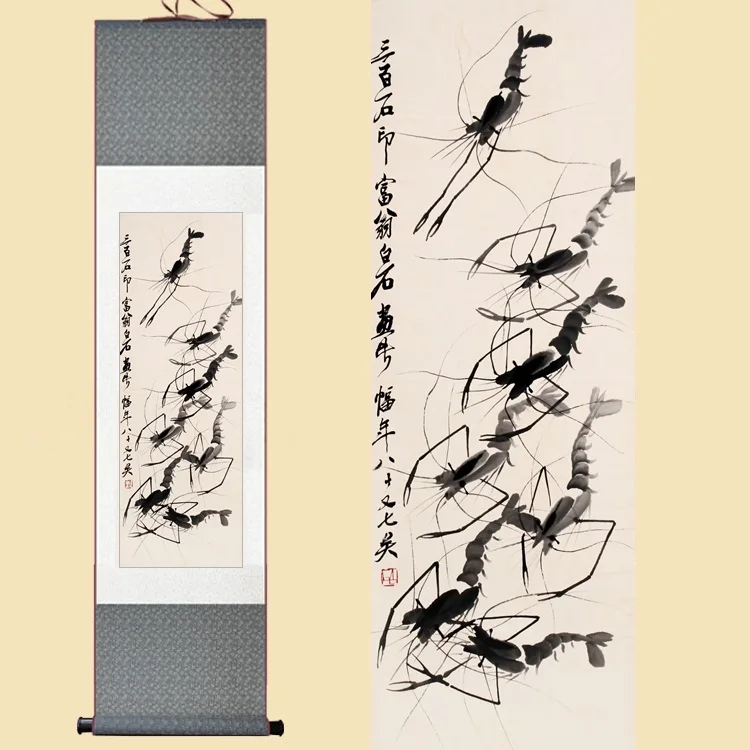 三百石印富翁白石画此幅年八十又七矣
三百石印富翁白石画此幅年八十又七矣